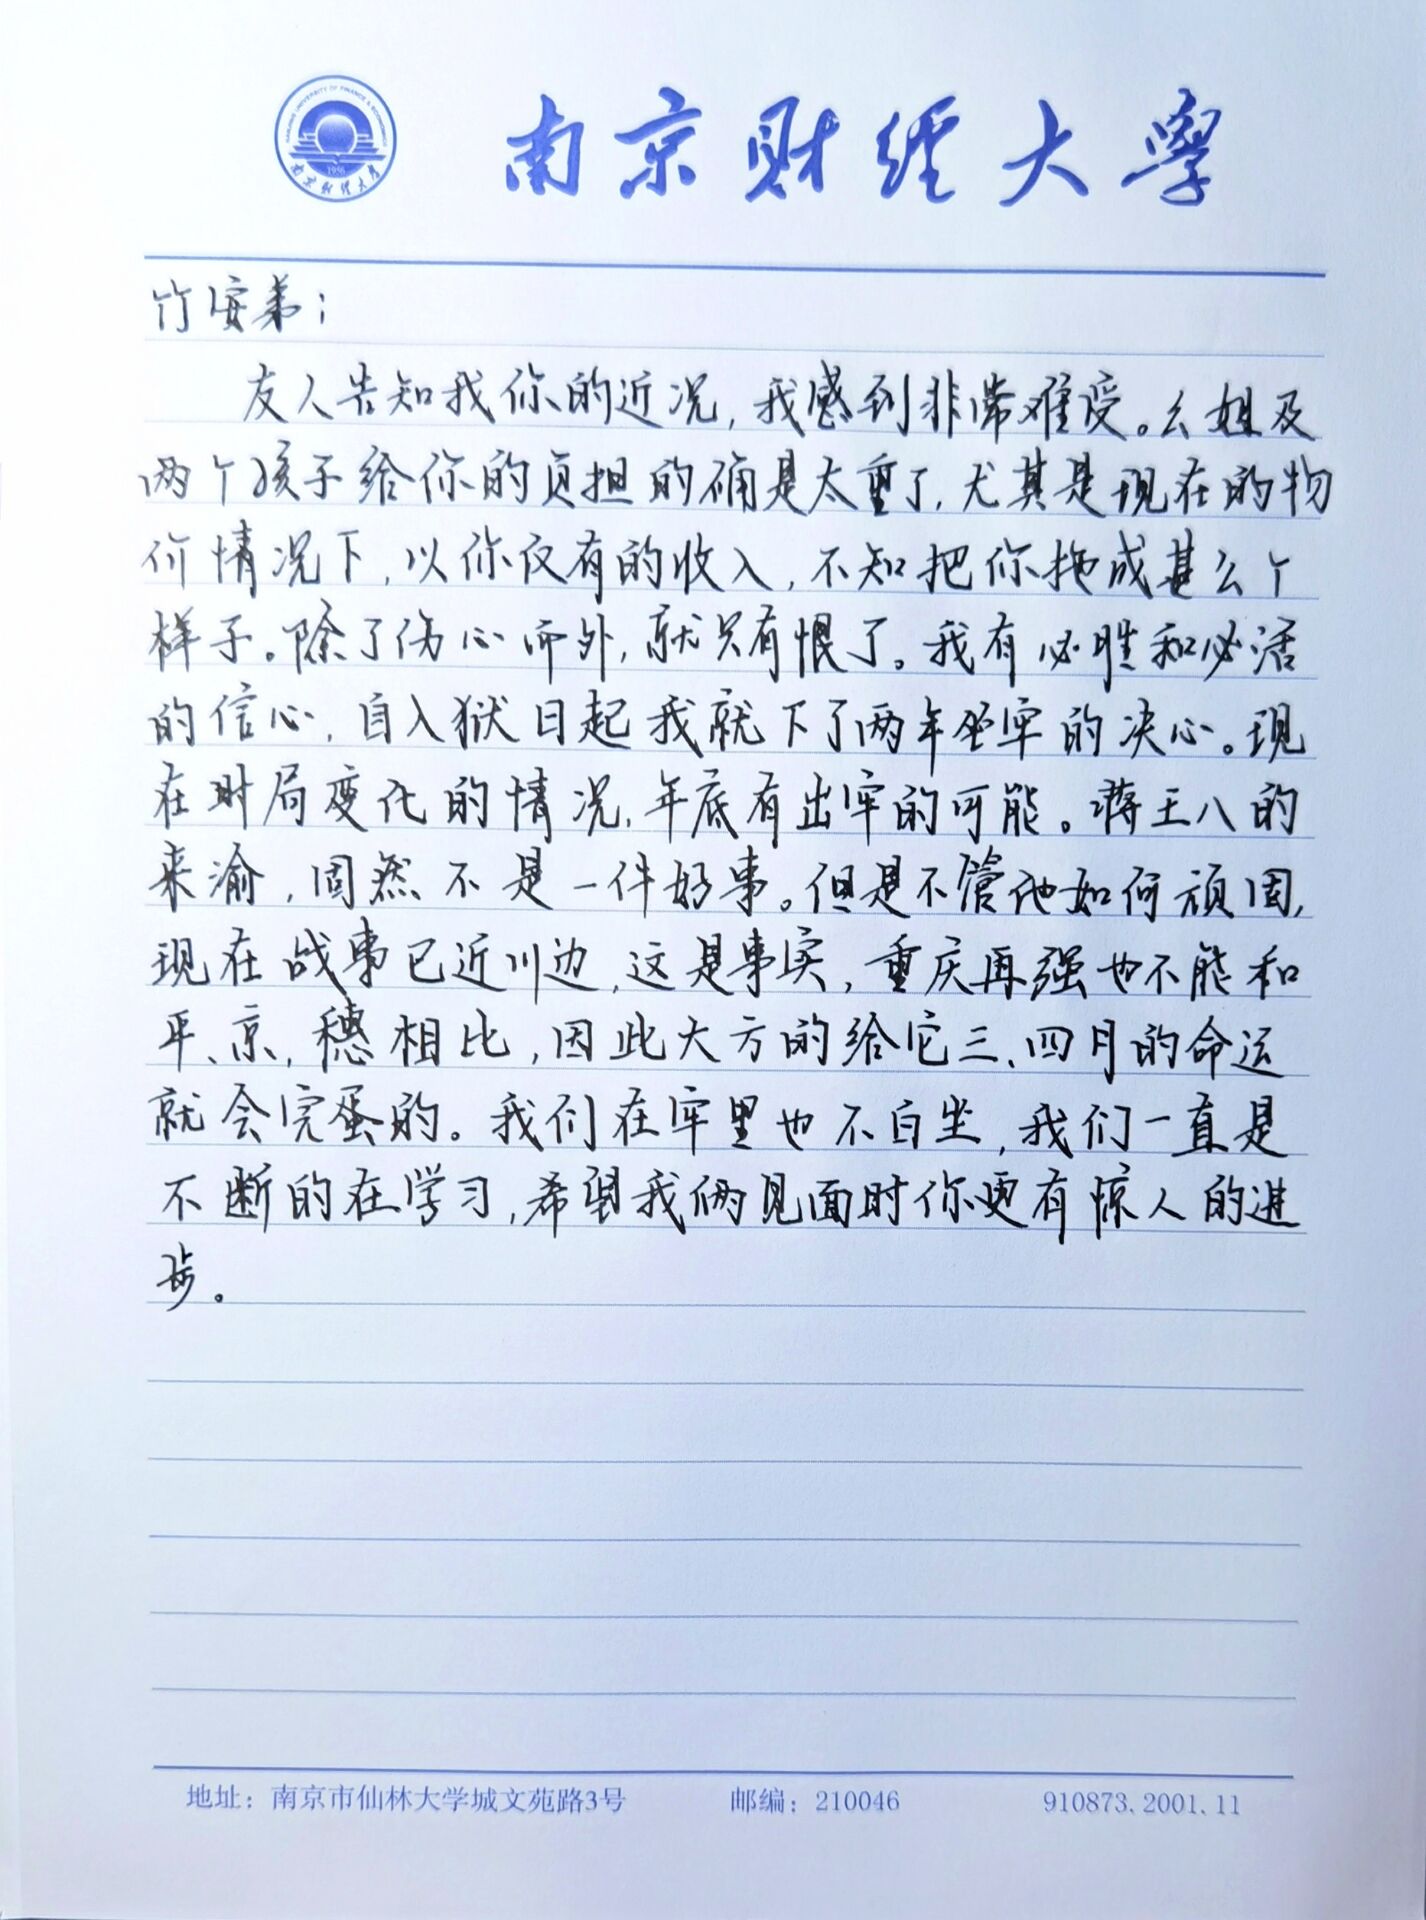 NANJING UNIVERSITY OF FINANCE & ECONOMICS
1956
南京财经大学
南京财经大學
竹安弟：
友人告知我你的近况，我感到非常难受。么姐及
两个孩子给你的负担的确是太重了，尤其是现在的物
价情况下，以你仅有的收入，不知把你拖成甚么个
样子。除了伤心而外，就只有恨了。我有必胜和必活
的信心，自入狱日起我就下了两年坐牢的决心。现
在时局变化的情况，年底有出牢的可能。蒋王八的
来渝，固然不是一件好事。但是不管他如何顽固，
现在战事已近川边，这是事实，重庆再强也不能和
平、京，穗相比，因此大方的给它三、四月的命运
就会完蛋的。我们在牢里也不白坐，我们一直是
不断的在学习，希望我俩见面时你更有惊人的进
步。
地址：南京市仙林大学城文苑路3号 邮编：210046 910873.2001.11